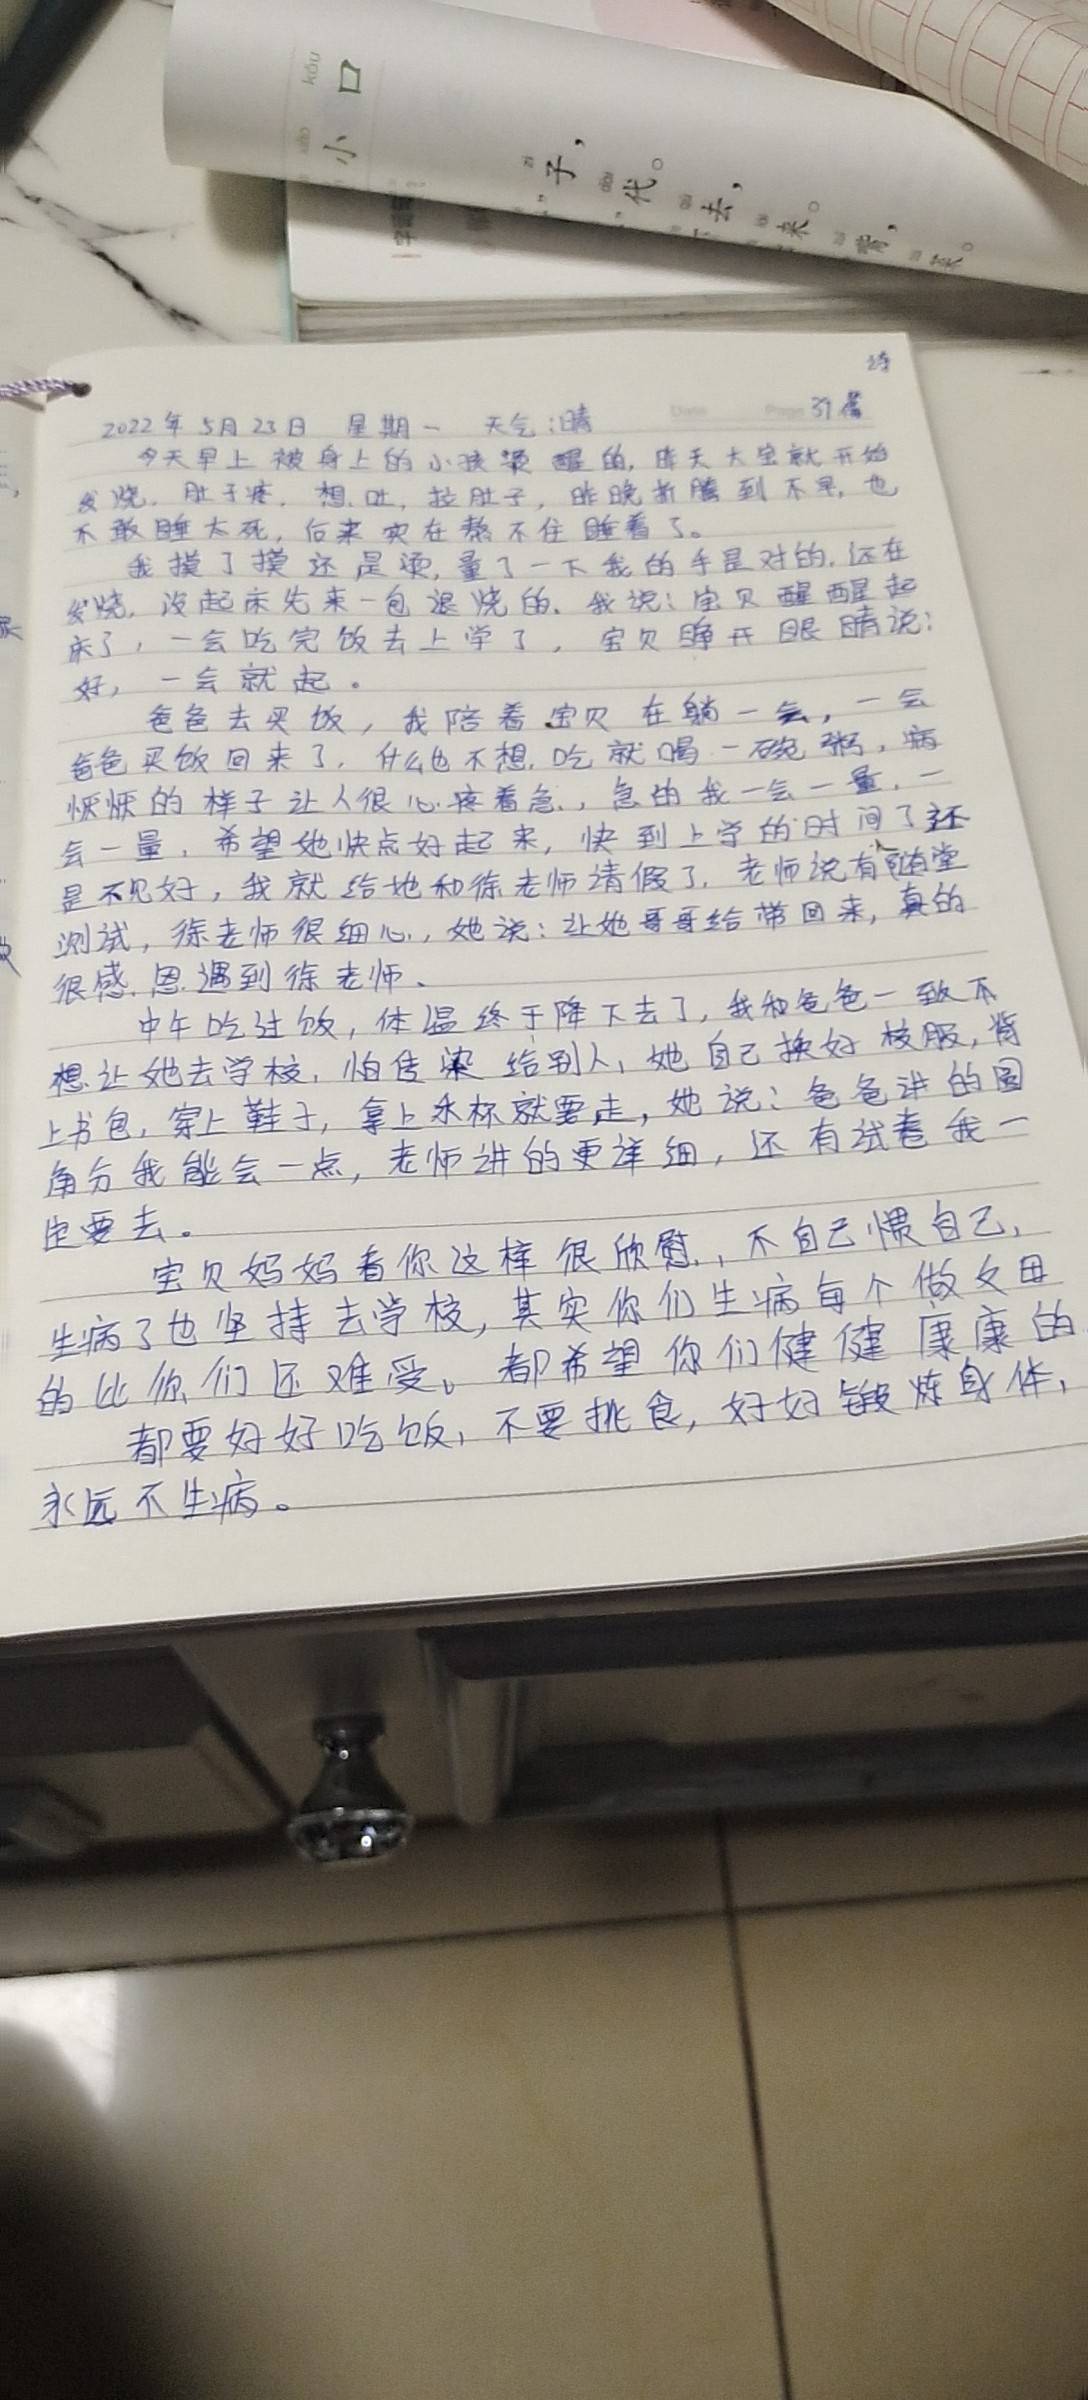 kǒu
口
小
子，
代。
去，
来。
诗
Date Page 37篇
2022年5月23日 星期一 天气：晴
今天早上被身上的小孩烫醒的，昨天大宝就开始
发烧，肚子疼，想吐，拉肚子，昨晚折腾到不早，也
不敢睡太死，后来实在熬不住睡着了。
我摸了摸还是烫，量了一下我的手是对的，还在
发烧，没起床先来一包退烧的，我说：宝贝醒醒起
床了，一会吃完饭去上学了，宝贝睁开眼睛说：
好，一会就起。
爸爸去买饭，我陪着宝贝在躺一会，一会
爸爸买饭回来了，什么也不想吃就喝一碗粥，病
恹恹的样子让人很心疼着急，急的我一会一量，一
会一量，希望她快点好起来，快到上学的时间了还
是不见好，我就给她和徐老师请假了，老师说有随堂
测试，徐老师很细心，她说：让她哥哥给带回来，真的
很感恩遇到徐老师、
中午吃过饭，体温终于降下去了，我和爸爸一致不
想让她去学校，怕传染给别人，她自己换好校服，背
上书包，穿上鞋子，拿上水杯就要走，她说：爸爸讲的圆
角分我能会一点，老师讲的更详细，还有试卷我一
定要去。
宝贝妈妈看你这样很欣慰，不自己惯自己，
生病了也坚持去学校，其实你们生病每个做父母
的比你们还难受。都希望你们健健康康的
都要好好吃饭，不要挑食，好好锻炼身体，
永远不生病。